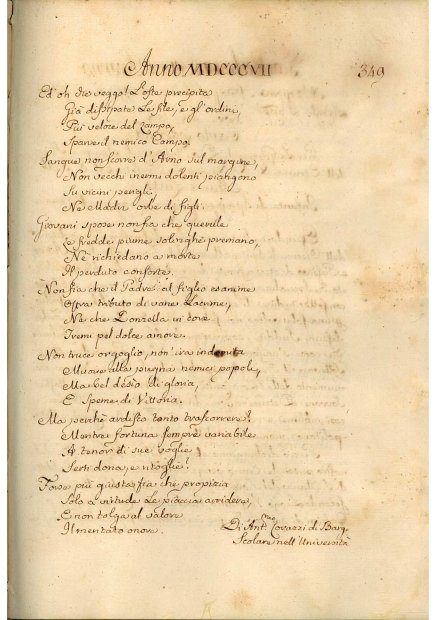 Anno MDCCCVII 349
Ed oh che veggo! L'oste precipita
Già dissipate Le file, e gl'ordini,
Più veloce del Lampo,
Sparve il nemico Campo.
Sangue non scorre d'Arno sul margine,
Non vecchi inermi dolenti piangono
Su vicini perigli,
Ne Madri orbe di figli.
Giovani spose non fia che querule
Le fredde piume solinghe premano,
Ne richiedano a morte
Il perduto conforte.
Non fia che il Padre al figlio esanime
Offra tributo di vane Lacrime,
Ne che Donzella in core
Tremi pel dolce amore.
Non truce orgoglio, non ira indomita
Muove alla pugna nemici popoli,
Ma bel désio di gloria,
E Speme di Vittoria.
Ma perchè ardisti tanto trascorrere?
Mentre fortuna sempre variabile
A tenor di sue voglie
Serti dona, e ritoglie?
Forse più giusta fia che propizia
Solo a virtude Le piaccia arridere,
E non tolga al valore
Il meritato onore.
Di Ant. Covazzi di Barg.
Scolare nell'Università